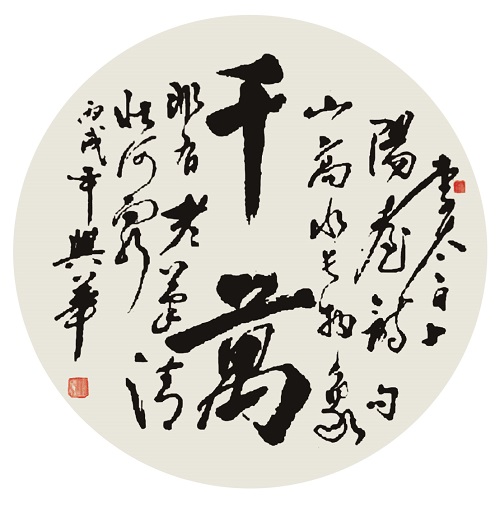 李太白上
陽臺詩句
山高水长物象
千萬
非有老筆清
壯何窮
丙戌年興華